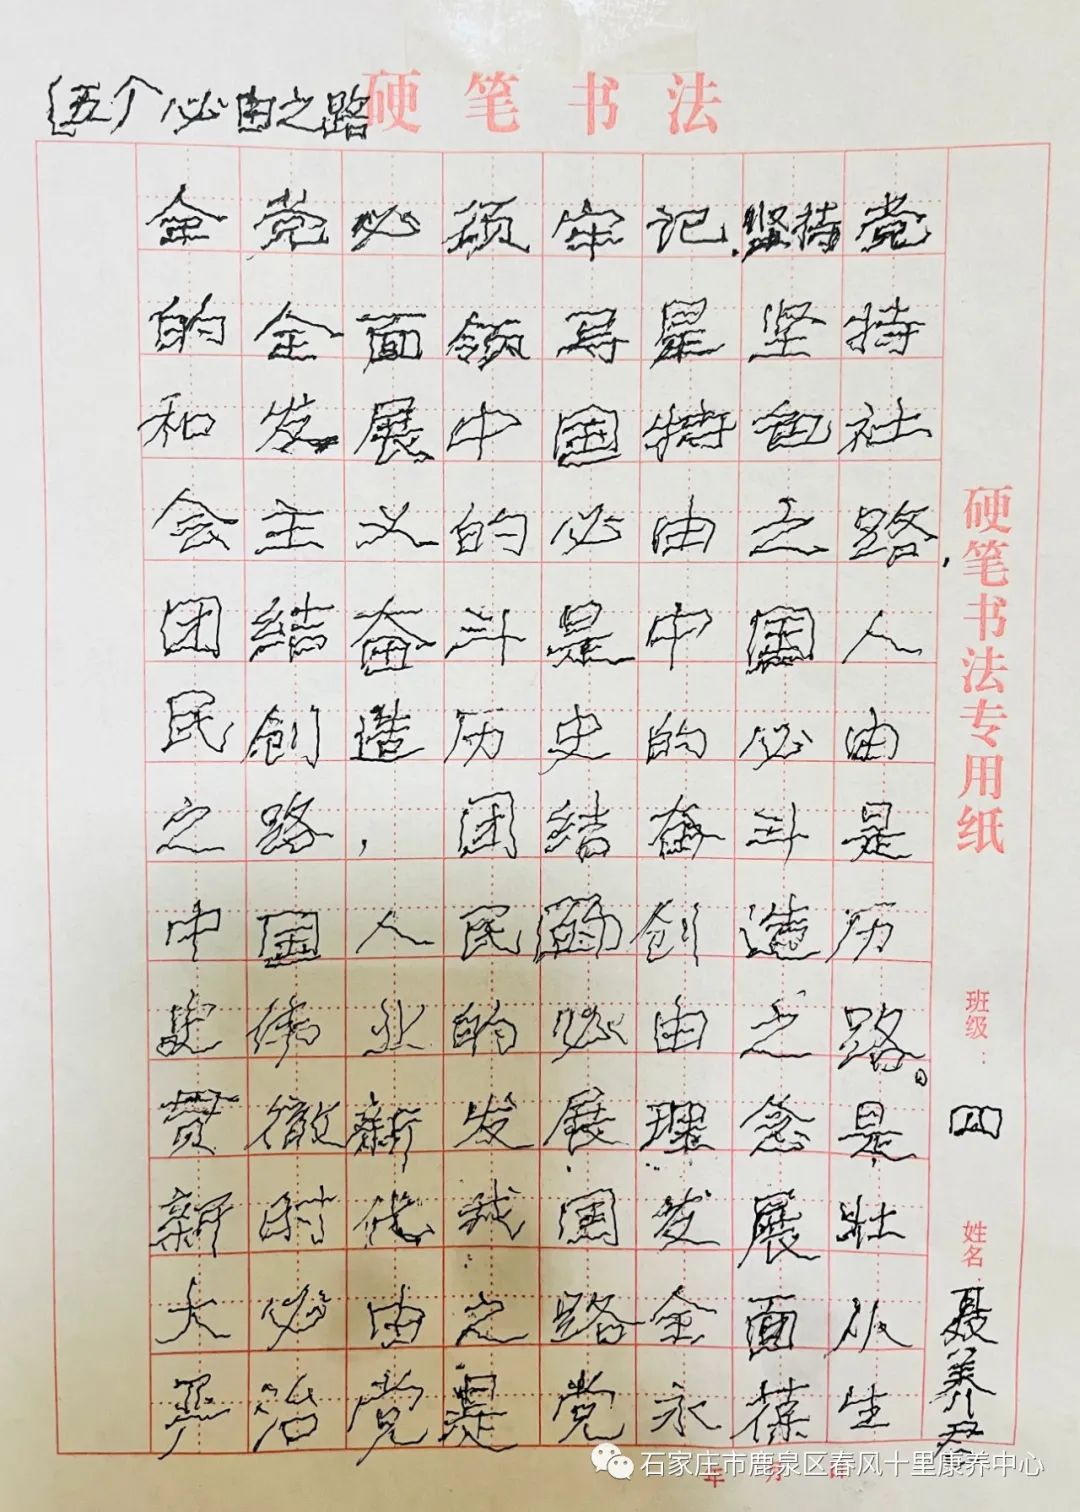 硬笔书法
五个必由之路
全党必须牢记.坚持党
的全面领导是坚持
和发展中国特色社
会主义的必由之路,
团结奋斗是中国人
民创造历史的必由
之路,团结奋斗是
中国人民的创造历
史伟业的必由之路。
贯彻新发展理念是
新时代我国发展壮
大必由之路全面从
严治党是党永葆生
硬笔书法专用纸
班级:四
姓名 聂养君
石家庄市鹿泉区春风十里康养中心